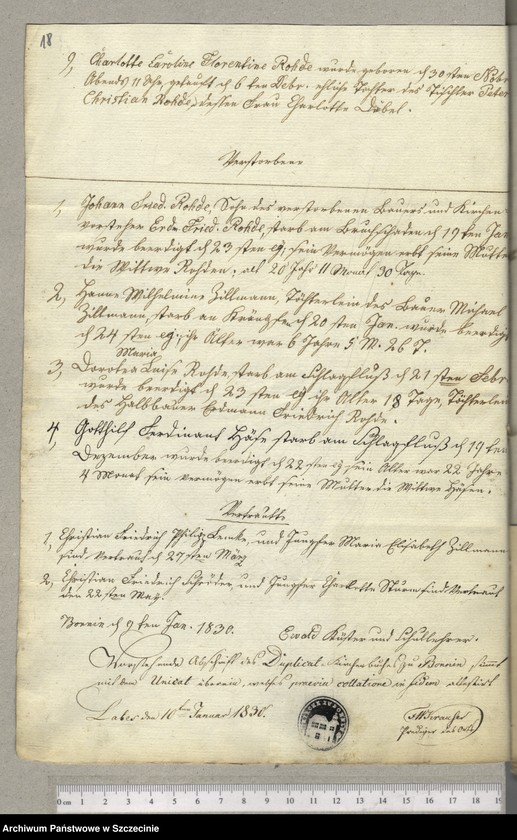 18
9, Charlotte Caroline Florentine Rohde wurde geboren d 30sten Nobr
Abends 11 Uhr, getauft d 6ten Debr. ehliche Tochter des Tischler Peter
Christian Rohde, dessen Frau Charlotte Däbel.
Verstorbene
1, Johann Fried. Rohde, Sohn des verstorbenen Bauers und Kirchen-
vorsteher Erdm. Fried. Rohde, starb am Bruchschaden d 19ten Jan
wurde beerdigt d 23sten ej, sein Vermögen erbt seine Mutter
die Wittwe Rohden, alt 20 Jahr 11 Monat 30 Tage.
2, Hanne Wilhelmine Zillmann, Töchterlein des Bauer Michael
Zillmann, starb an Krämpfen d 20sten Jan. wurde beerdigt
d 24sten ej. ihr Alter war 6 Jahre 5 M. 26 T.
Maria
3, Dorotea Luise Rohde, starb am Schlagfluß d 21sten Febr
wurde beerdigt d 23sten ej ihr Alter 18 Tage, Töchterlein
des Halbbauer Erdmann Friedrich Rohde.
4, Gotthilf Ferdinant Häse starb am Schlagfluß d 19ten
Dezember wurde beerdigt d 22sten ej sein Alter war 22 Jahre
4 Monat sein Vermögen erbt seine Mutter die Wittwe Häsen.
Vertraute
1, Christian Friedrich Philipp Lemke, und Jungfer Maria Elisabeth Zillmann
sind Vertraut d 27sten März
2, Christian Friedrich Schröder, und Jungfer Charlotte Sturm sind Vertraut
den 22sten May.
Bonin d 9ten Jan. 1830.
Ewald Küster und Schullehrer.
Vorstehende Abschrift des Duplicat-Kirchenbuches zu Bonin stimmt
mit dem Unicat überein, welches praevia collatione in fidem attestirt
Labes den 10ten Januar 1830.
Prediger des Orts
0 cm 1 2 3 4 5 6 7 8 9 10 11 12 13 14 15 16 17 18 19
Archiwum Państwowe w Szczecinie